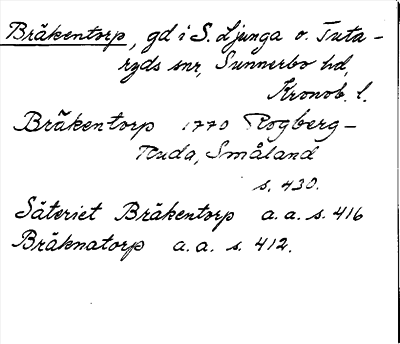 Bräkentorp, gd i S. Ljunga o. Tuta-
ryds snr, Sunnerbo hd,
Kronob. l.
Bräkentorp 1770 Rogberg-
Ruda, Småland
s. 430.
Säteriet Bräkentorp a.a. s. 416
Bräknatorp a.a. s. 412.